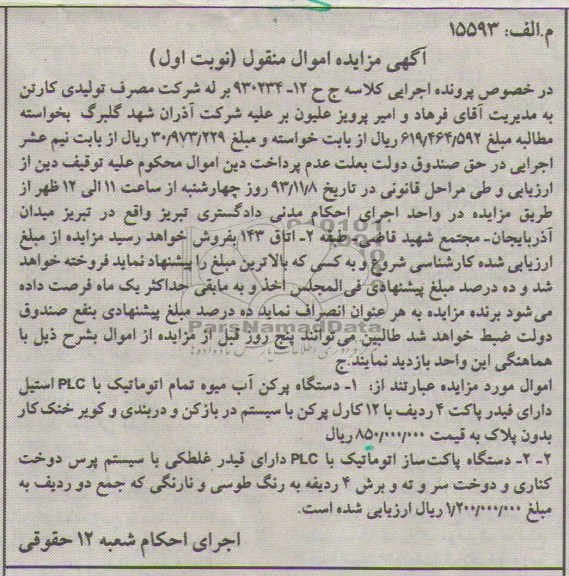 م.الف: ۱۵۵۹۳
آگهی مزایده اموال منقول (نوبت اول)
در خصوص پرونده اجرایی کلاسه ج ح ۱۲-۹۳۰۲۳۴ بر له شرکت مصرف تولیدی کارتن
به مدیریت آقای فرهاد و امیر پرویز علیون بر علیه شرکت آذران شهد گلبرگ بخواسته
مطالبه مبلغ ۶۱۹/۴۶۴/۵۹۲ ریال از بابت خواسته و مبلغ ۳۰/۹۷۳/۲۲۹ ریال از بابت نیم عشر
اجرایی در حق صندوق دولت بعلت عدم پرداخت دین اموال محکوم علیه توقیف دین از
ارزیابی و طی مراحل قانونی در تاریخ ۹۳/۱۱/۸ روز چهارشنبه از ساعت ۱۱ الی ۱۲ ظهر از
طریق مزایده در واحد اجرای احکام مدنی دادگستری تبریز واقع در تبریز میدان
آذربایجان- مجتمع شهید قاضی- طبقه ۲- اتاق ۱۴۳ بفروش خواهد رسید مزایده از مبلغ
ارزیابی شده کارشناسی شروع و به کسی که بالاترین مبلغ را پیشنهاد نماید فروخته خواهد
شد و ده درصد مبلغ پیشنهادی فی‌المجلس اخذ و به مابقی حداکثر یک ماه فرصت داده
می‌شود برنده مزایده به هر عنوان انصراف نماید ده درصد مبلغ پیشنهادی بنفع صندوق
دولت ضبط خواهد شد طالبین می‌توانند پنج روز قبل از مزایده از اموال بشرح ذیل با
هماهنگی این واحد بازدید نمایند.ج
اموال مورد مزایده عبارتند از: ۱- دستگاه پرکن آب میوه تمام اتوماتیک با PLC استیل
دارای فیدر پاکت ۴ ردیف با ۱۲ کارل پرکن با سیستم در بازکن و دربندی و کویر خنک کار
بدون پلاک به قیمت ۸۵۰/۰۰۰/۰۰۰ ریال
۲- ۲- دستگاه پاکت‌ساز اتوماتیک با PLC دارای فیدر غلطکی با سیستم پرس دوخت
کناری و دوخت سر و ته و برش ۴ ردیفه به رنگ طوسی و نارنگی که جمع دو ردیف به
مبلغ ۱/۲۰۰/۰۰۰/۰۰۰ ریال ارزیابی شده است.
اجرای احکام شعبه ۱۲ حقوقی
ParsNamadData